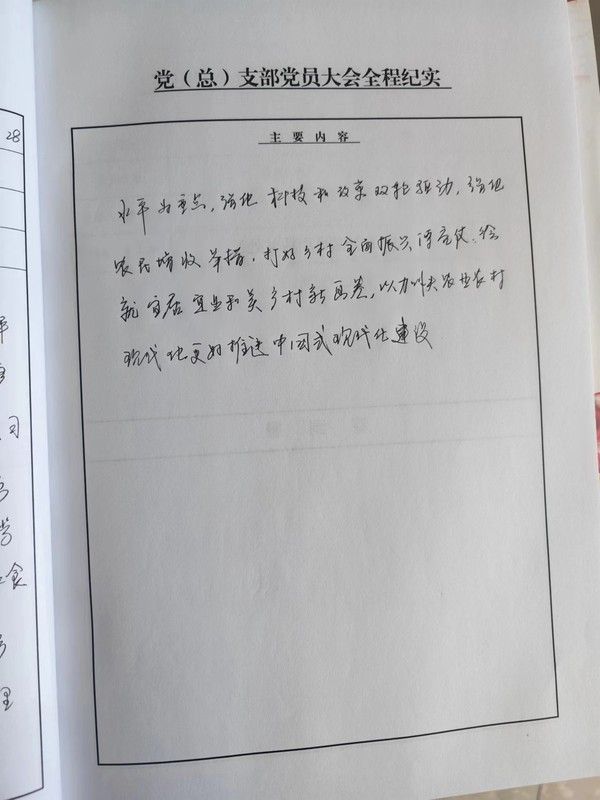 党（总）支部党员大会全程纪实
主要内容
水平为重点，强化科技和改革双轮驱动，强化
农民增收举措，打好乡村全面振兴漂亮仗、绘
就宜居宜业和美乡村新画卷，以加快农业农村
现代化更好推进中国式现代化建设
28
司
食
理